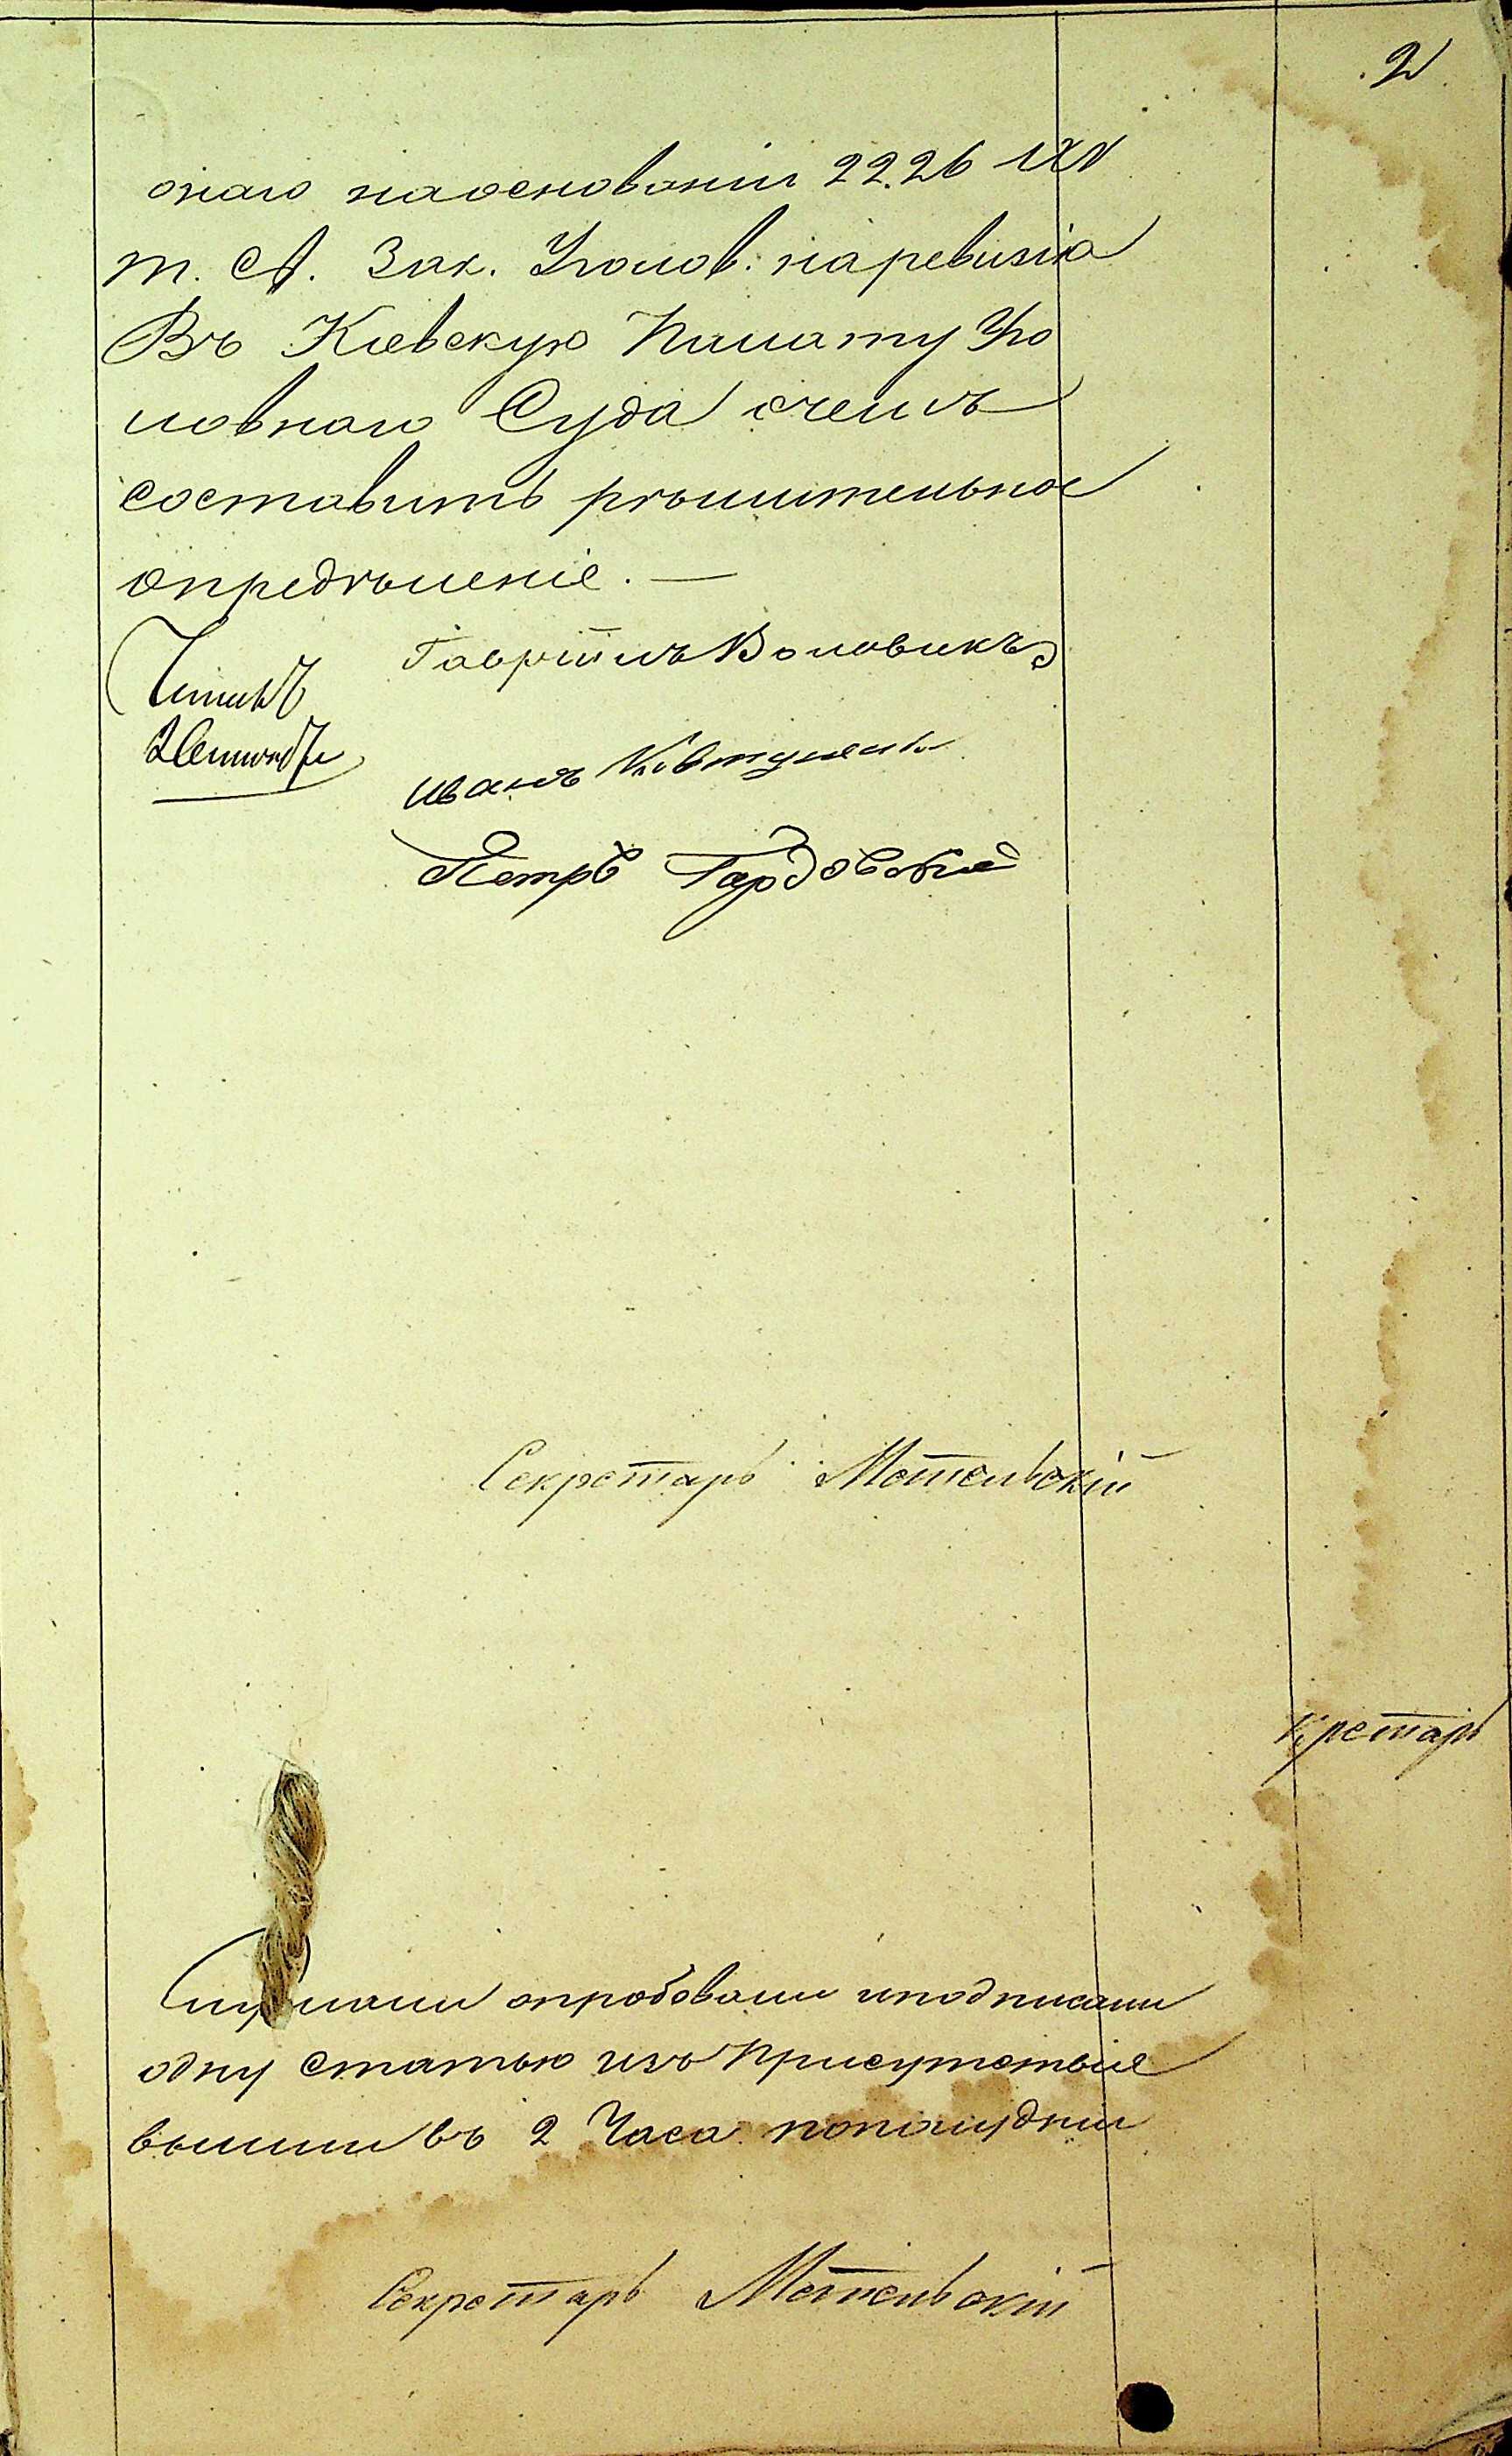 2
онаго наоснованіи 22.26 IXV
т. Св. Зак. Уголов. наревизіа
Въ Кіевскую Палату Уго
ловнаго Суда очемъ
составить рѣшительное
опредѣленіе. —
Гавріилъ Воловикъ
Иванъ Ковтунень
Петръ Гордовскій
Секретарь Метельскій
кретарь
Слушали опробовали иподписали
одну статью изъ Присутствіе
вышли въ 2 Часа пополуднии
Секретарь Метельскій